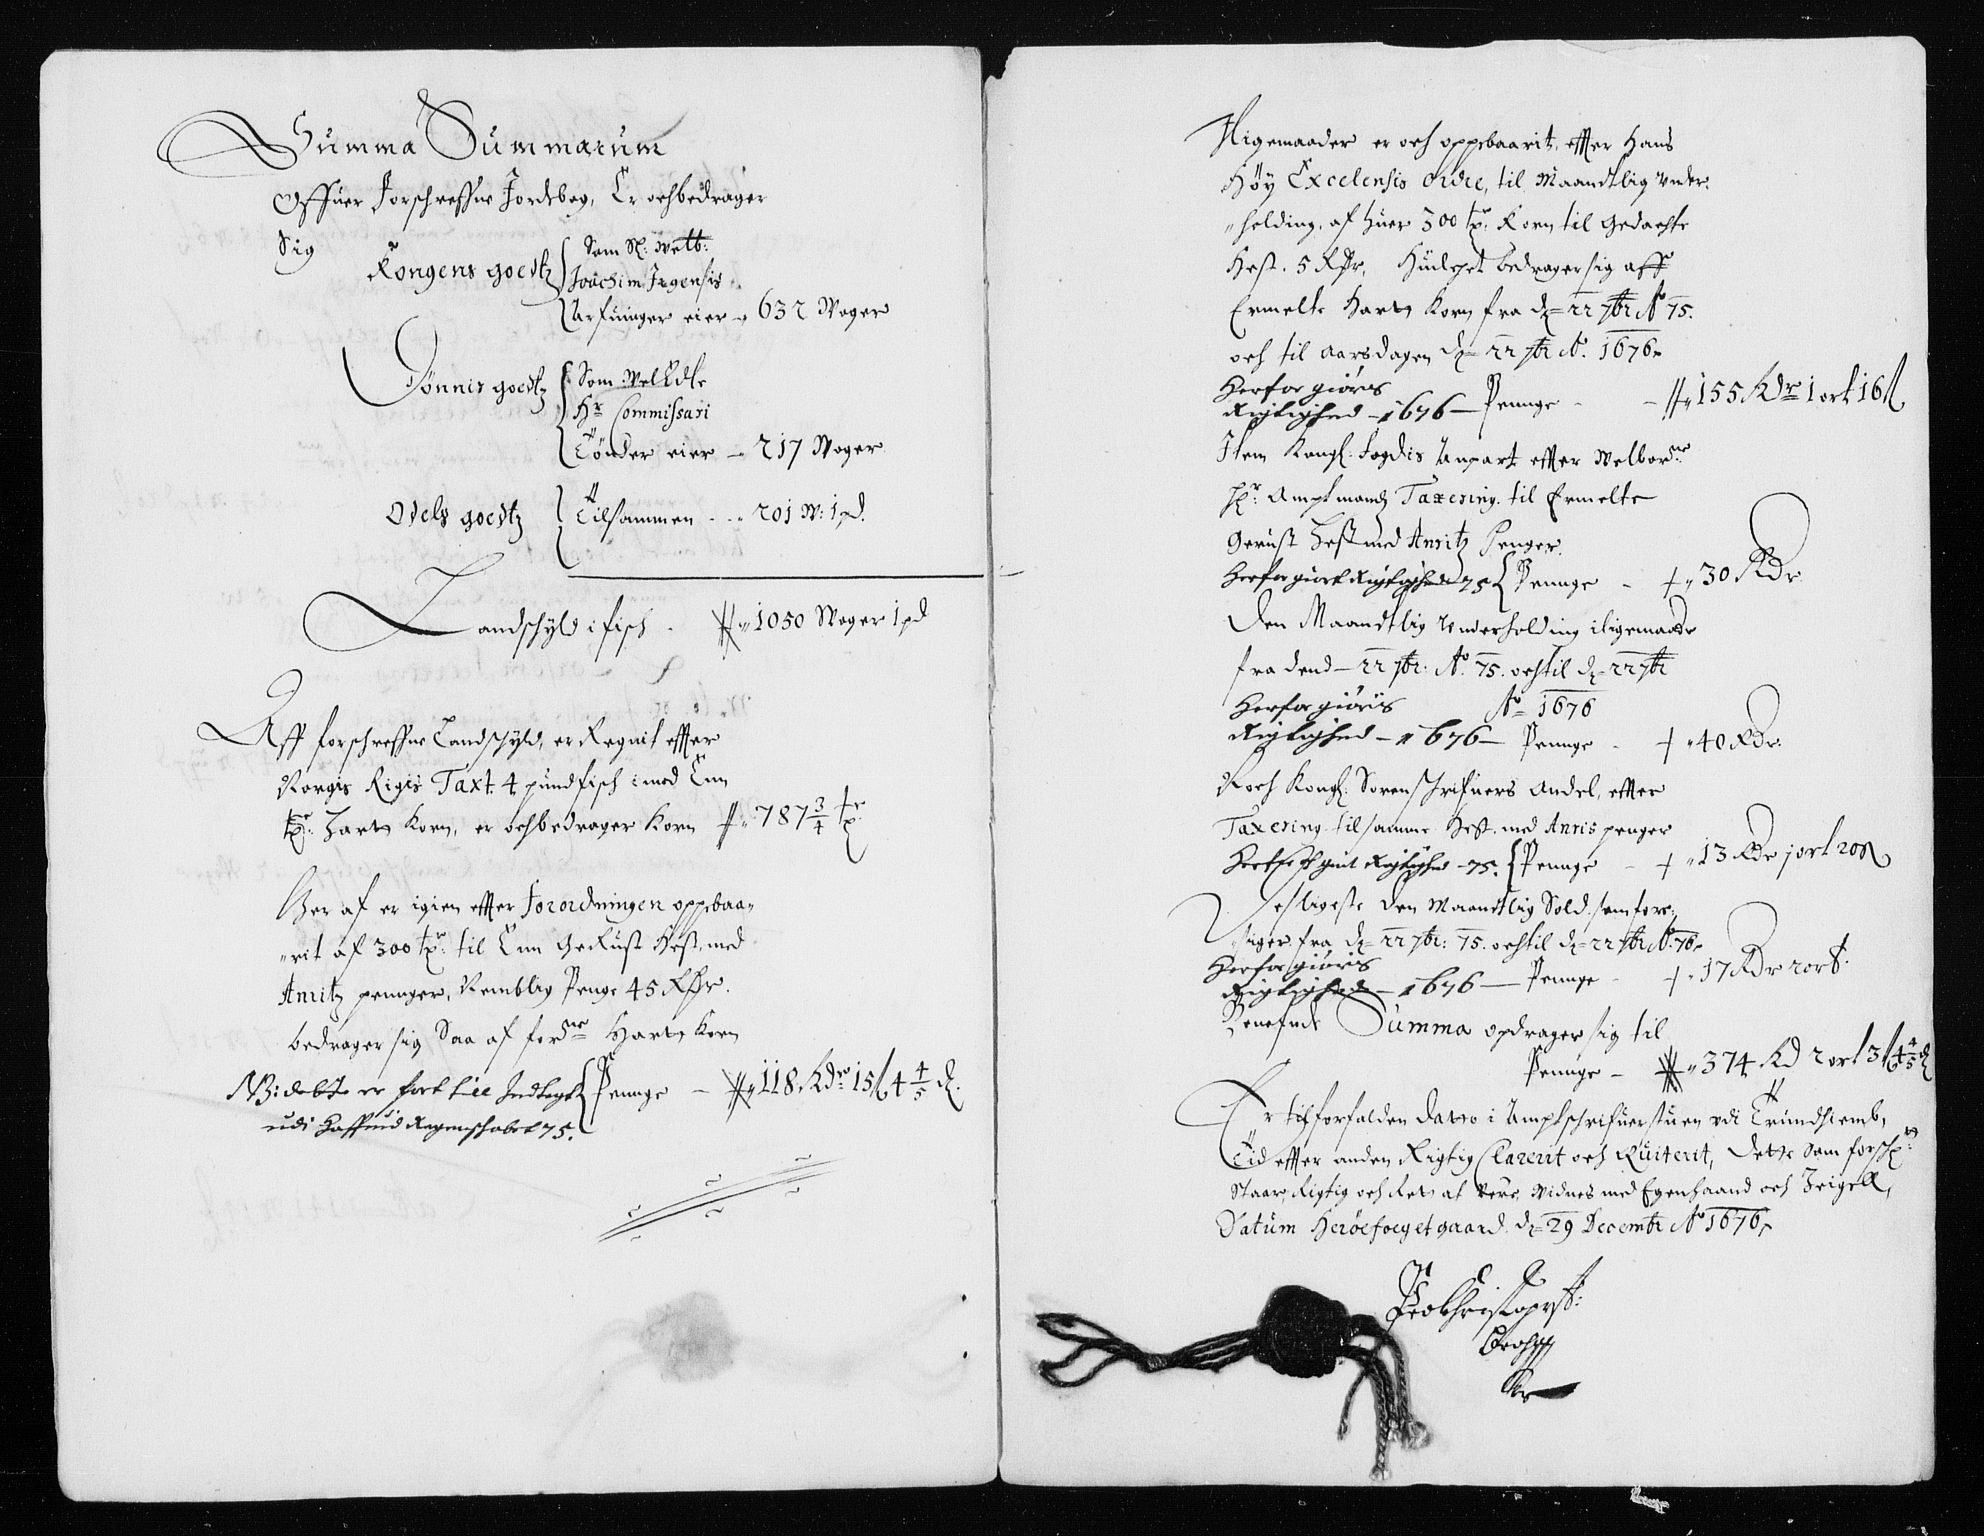 Summa Summarum
Offuer Forschreffne Jordebog, Er och bedrager
Sig
Kongens goedtz
Som Sl: Welb:
Joachim Irgensis
Arfuinger eier - 632 Woger
Dönnis goedtz
Som Wel Edle
Hr Commissari
Tönder eier - 217 Woger
Odels goedtz
Tilsammen - 201 W: 1 pd.
Landschyld i fisch - 1050 Woger 1 pd
Aff forschreffne Landschyld, er Regnit effter
Norgis Rigis Taxt 4 pund fisch imod Enn
tr: Hart Korn, er och bedrager Korn 787 3/4 tr
Her af er igien effter Forordningen oppebaa-
rit af 300 tr: til Enn Gerust Hest, med
Anritz pennger, Nemblig Penge 45 Rdr.
bedrager sig Saa af forne Hart Korn
NB: dette er ført till Indtegt
Pennge - 118 Rdr 15 s 4 4/5 d.
udi Regenschabet 75.
Ligemaader er och oppebaarit, effter Hans
Höy Excelensis Ordre, til Maandtlig Vnder-
holding, af huer 300 tr: Korn til Gedachte
Hest. 5 Rdr, Huilchet bedrager sig aff
Ermelte Hart Korn fra d= 22 7br Ao 75.
och til aarsdagen d= 22 7br Ao. 1676.
Herfor giöris
Rigtighed - 1676 - Pennge - 155 Rdr 1 ort 16 s
Item Kongl: Fogdis Anpart effter Welborne
Hr: Amptmands Taxering til Ermelte
Gerust Hest med Anritz Penger.
Herfor giort Rigtighed 75 Pennge - 30 Rdr
Den Maandtlig Underholding i ligemaade
fra dend 22 7br: Ao. 75. och til d= 22 7br
Herfor giöris Ao 1676
Rigtighed - 1676 - Pennge - 40 Rdr:
Noch Kongl: Sorenschrifuers Andel, effter
Taxering til samme Hest, med Anris penger
giort Rigtighed 75. Pennge - 13 Rdr 1 ort 20 s
Desligeste den Maandtlig Sold, som for-
siger fra d= 22 7br: 75. och til d= 22 7br Ao. 76.
Herfor giöris
Rigtighed - 1676 - Pennge - 17 Rdr 2 ort.
Benefnte Summa opdrager sig til
Pennge - 374 Rd 2 ort 3 s 4 4/5 d
Er til forfalden Datto i Amptschrifuerstuen vdi Trundhiemb,
Tid effter anden Rigtig Clarerit och Quiterit, Dette som forschr:
Staar, Rigtig och Ret at Vere, Vidnes med Egenhaand och Zeigell,
Datum Heröefoegetgaard d= 29 Decembr Ao 1676.